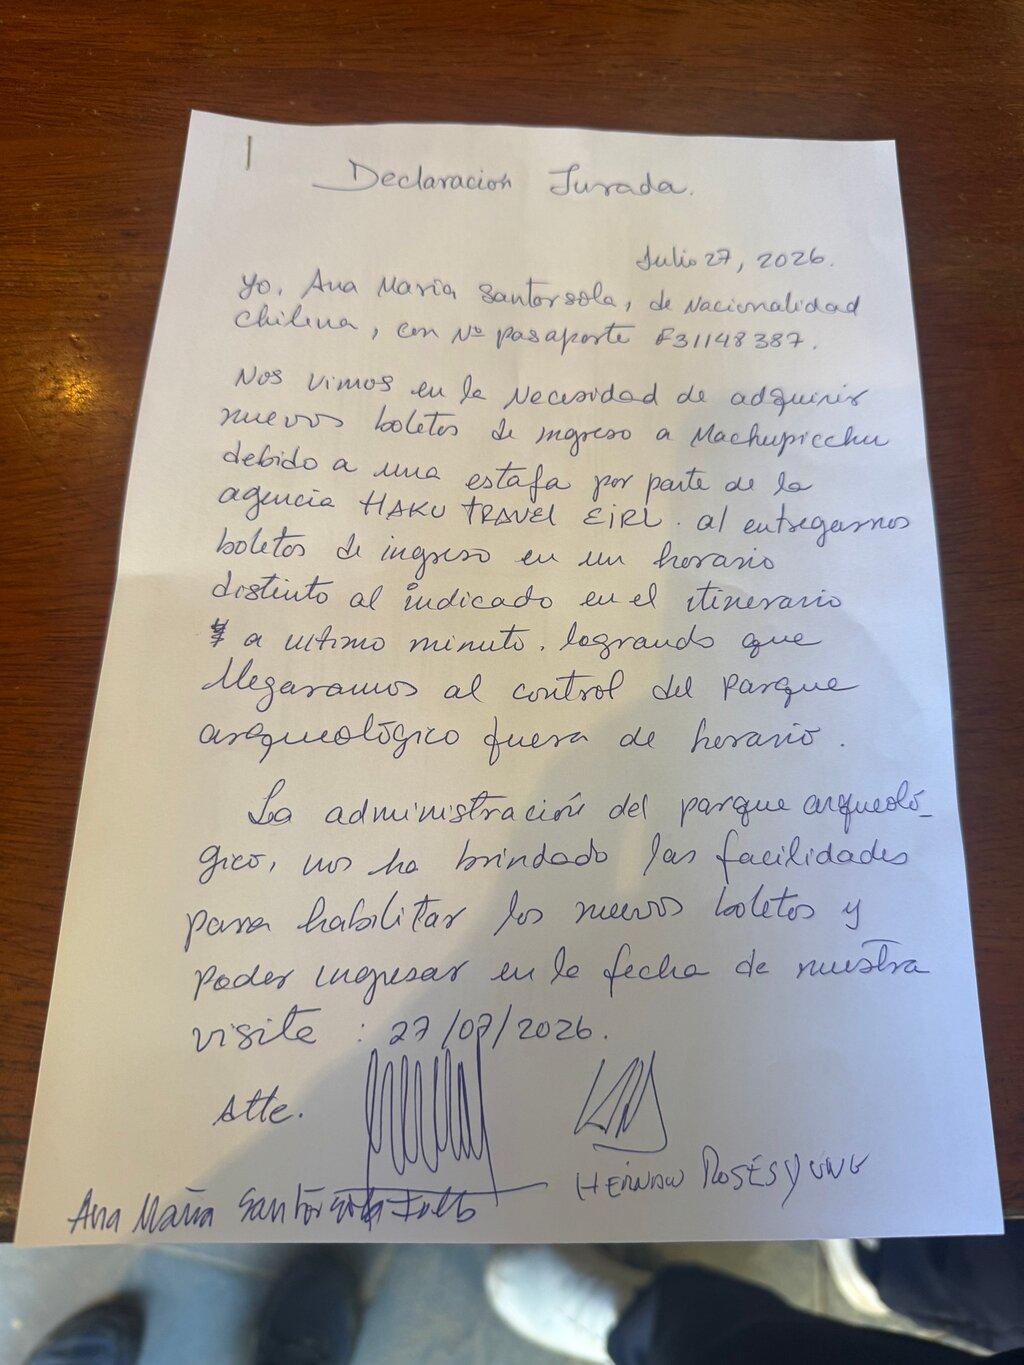 Declaracion Jurada.
Julio 27, 2026.
Yo, Ana Maria Santorsola, de Nacionalidad
chilena, con Nº pasaporte F31148387.
Nos vimos en la Necesidad de adquirir
nuevos boletos de ingreso a Machupicchu
debido a una estafa por parte de la
agencia HAKU TRAVEL EIRL. al entregarnos
boletos de ingreso en un horario
distinto al indicado en el itinerario
a ultimo minuto. logrando que
llegaramos al control del parque
arqueológico fuera de horario.
La administración del parque arqueoló-
gico, nos ha brindado las facilidades
para habilitar los nuevos boletos y
poder ingresar en la fecha de nuestra
visita : 27/07/2026.
Atte.
HERNAN ROSES YUNG
Ana Maria Santorsola